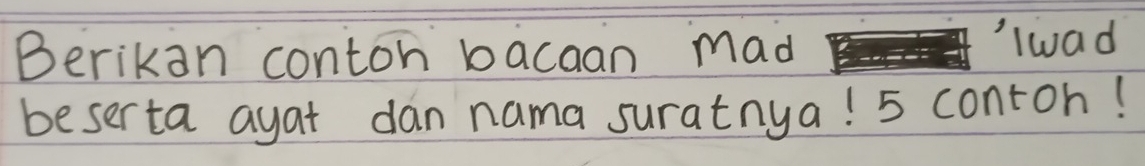 Berikan contoh bacaan Mad 'Iwad
beserta ayat dan nama suratnya! 5 contoh!